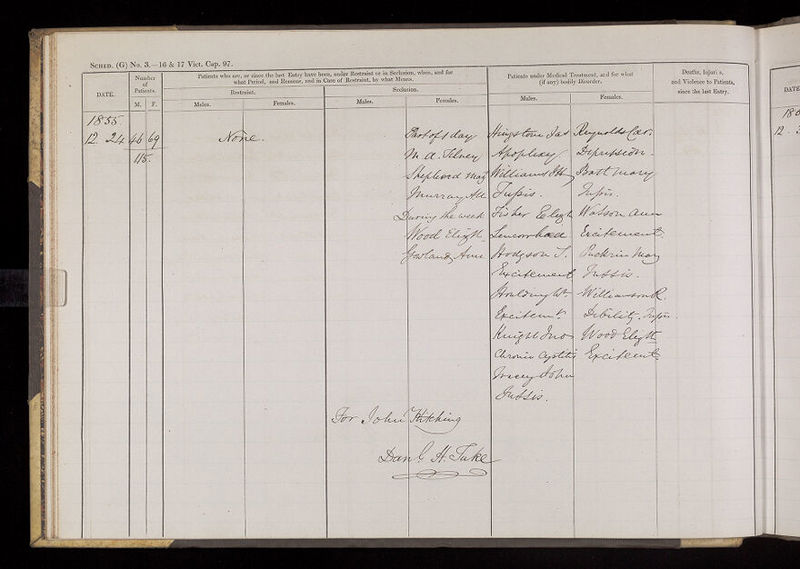 SCHED. (G) No. 3.—16 & 17 Vict. Cap. 97.
DATE.
Number of Patients.
M. F.
Patients who are, or since the last Entry have been, under Restraint or in Seclusion, when, and for
what Period, and Reasons, and in Case of Restraint, by what Means.
Restraint.
Males. Females.
Seclusion.
Males. Females.
Patients under Medical Treatment, and for what
(if any) bodily Disorder.
Males. Females.
Deaths, Injuries,
and Violence to Patients,
since the last Entry.
DATE
1855
12. 24 46 69
115.
None.
Part of 1 day
M. A. Silney
Shepherd May
Murray
During the week
Wood Elizth.
Ann
Kingstone Jas
Apoplexy
Williams
Tussis.
Fisher Elizth
Leucorrhoea
Hodgson T.
Excitement
Excitemt.
Knight Jno
Chronic Cystitis
Tracey John
Tussis.
Reynolds
Depression.
Batt Mary
Tussis.
Watson Ann
Excitement.
Puckrin Mary
Tussis.
Williamson R.
Debility. Tussis.
Wood Elizth
Excitemt.
For John Kitching
Danl. H. Tuke
12.